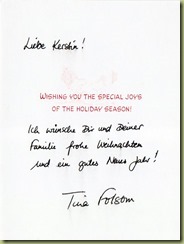 Liebe Kerstin!
WISHING YOU THE SPECIAL JOYS
OF THE HOLIDAY SEASON!
Ich wünsche Dir und Deiner
Familie frohe Weihnachten
und ein gutes Neues Jahr!
Tina Folsom